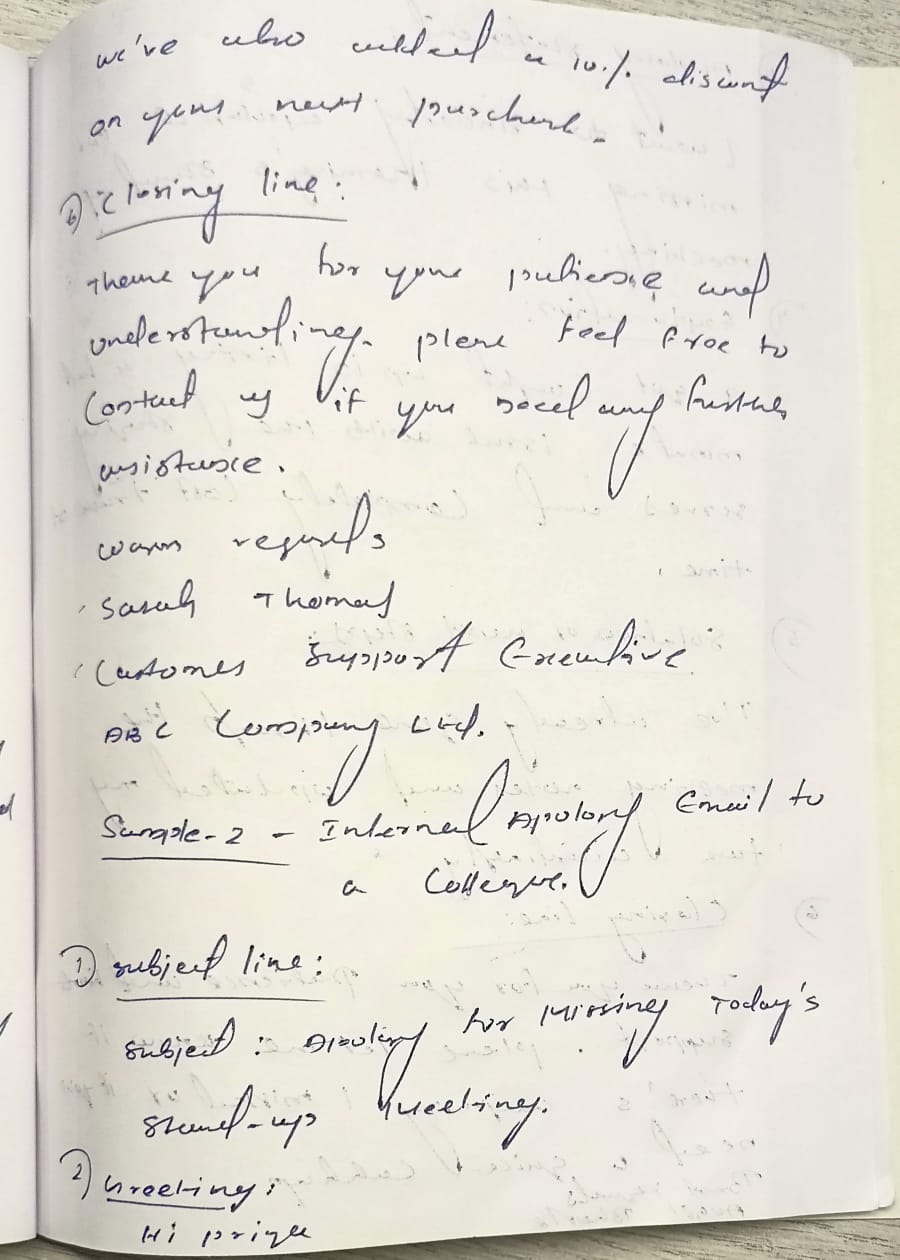 we've also added a 10% discount
on your next purchase.
⑥ Closing line:
Thank you for your patience and
understanding. please feel free to
Contact us if you need any further
assistance.
warm regards
Sarah Thomas
Customer Support Executive
ABC Company Ltd.
Sample-2 - Internal Apology Email to
a Colleague.
① subject line:
subject : Apology for Missing Today's
stand-up Meeting.
② Greeting:
Hi priya